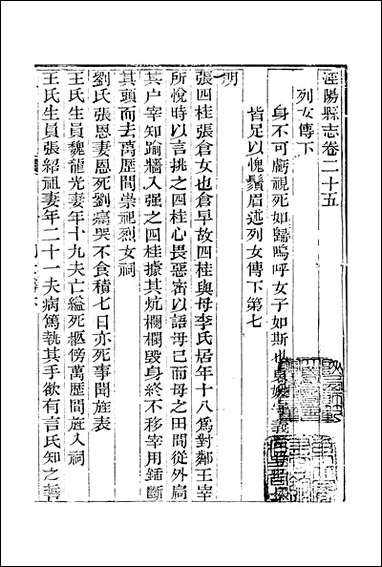 涇陽縣志卷二十五
列女傳下
身不可虧視死如歸嗚呼女子如斯也貞
皆足以愧鬚眉述列女傳下第七
明
張四桂張倉女也倉早故四桂與母李氏居年十八爲對鄰王宰
所悅時以言挑之四桂心畏惡密以語母已而母之田間從外扃
其户宰知踰牆入强之四桂據其炕欄欄毀身終不移宰用鍤斷
其頭而去萬歷間崇祀烈女祠
劉氏張恩妻恩死劉痛哭不食積七日亦死事聞旌表
王氏生員魏龍光妻年十九夫亡縊死柩傍萬歷間旌入祠
王氏生員張紹祖妻年二十一夫病篤執其手欲有言氏知之誓